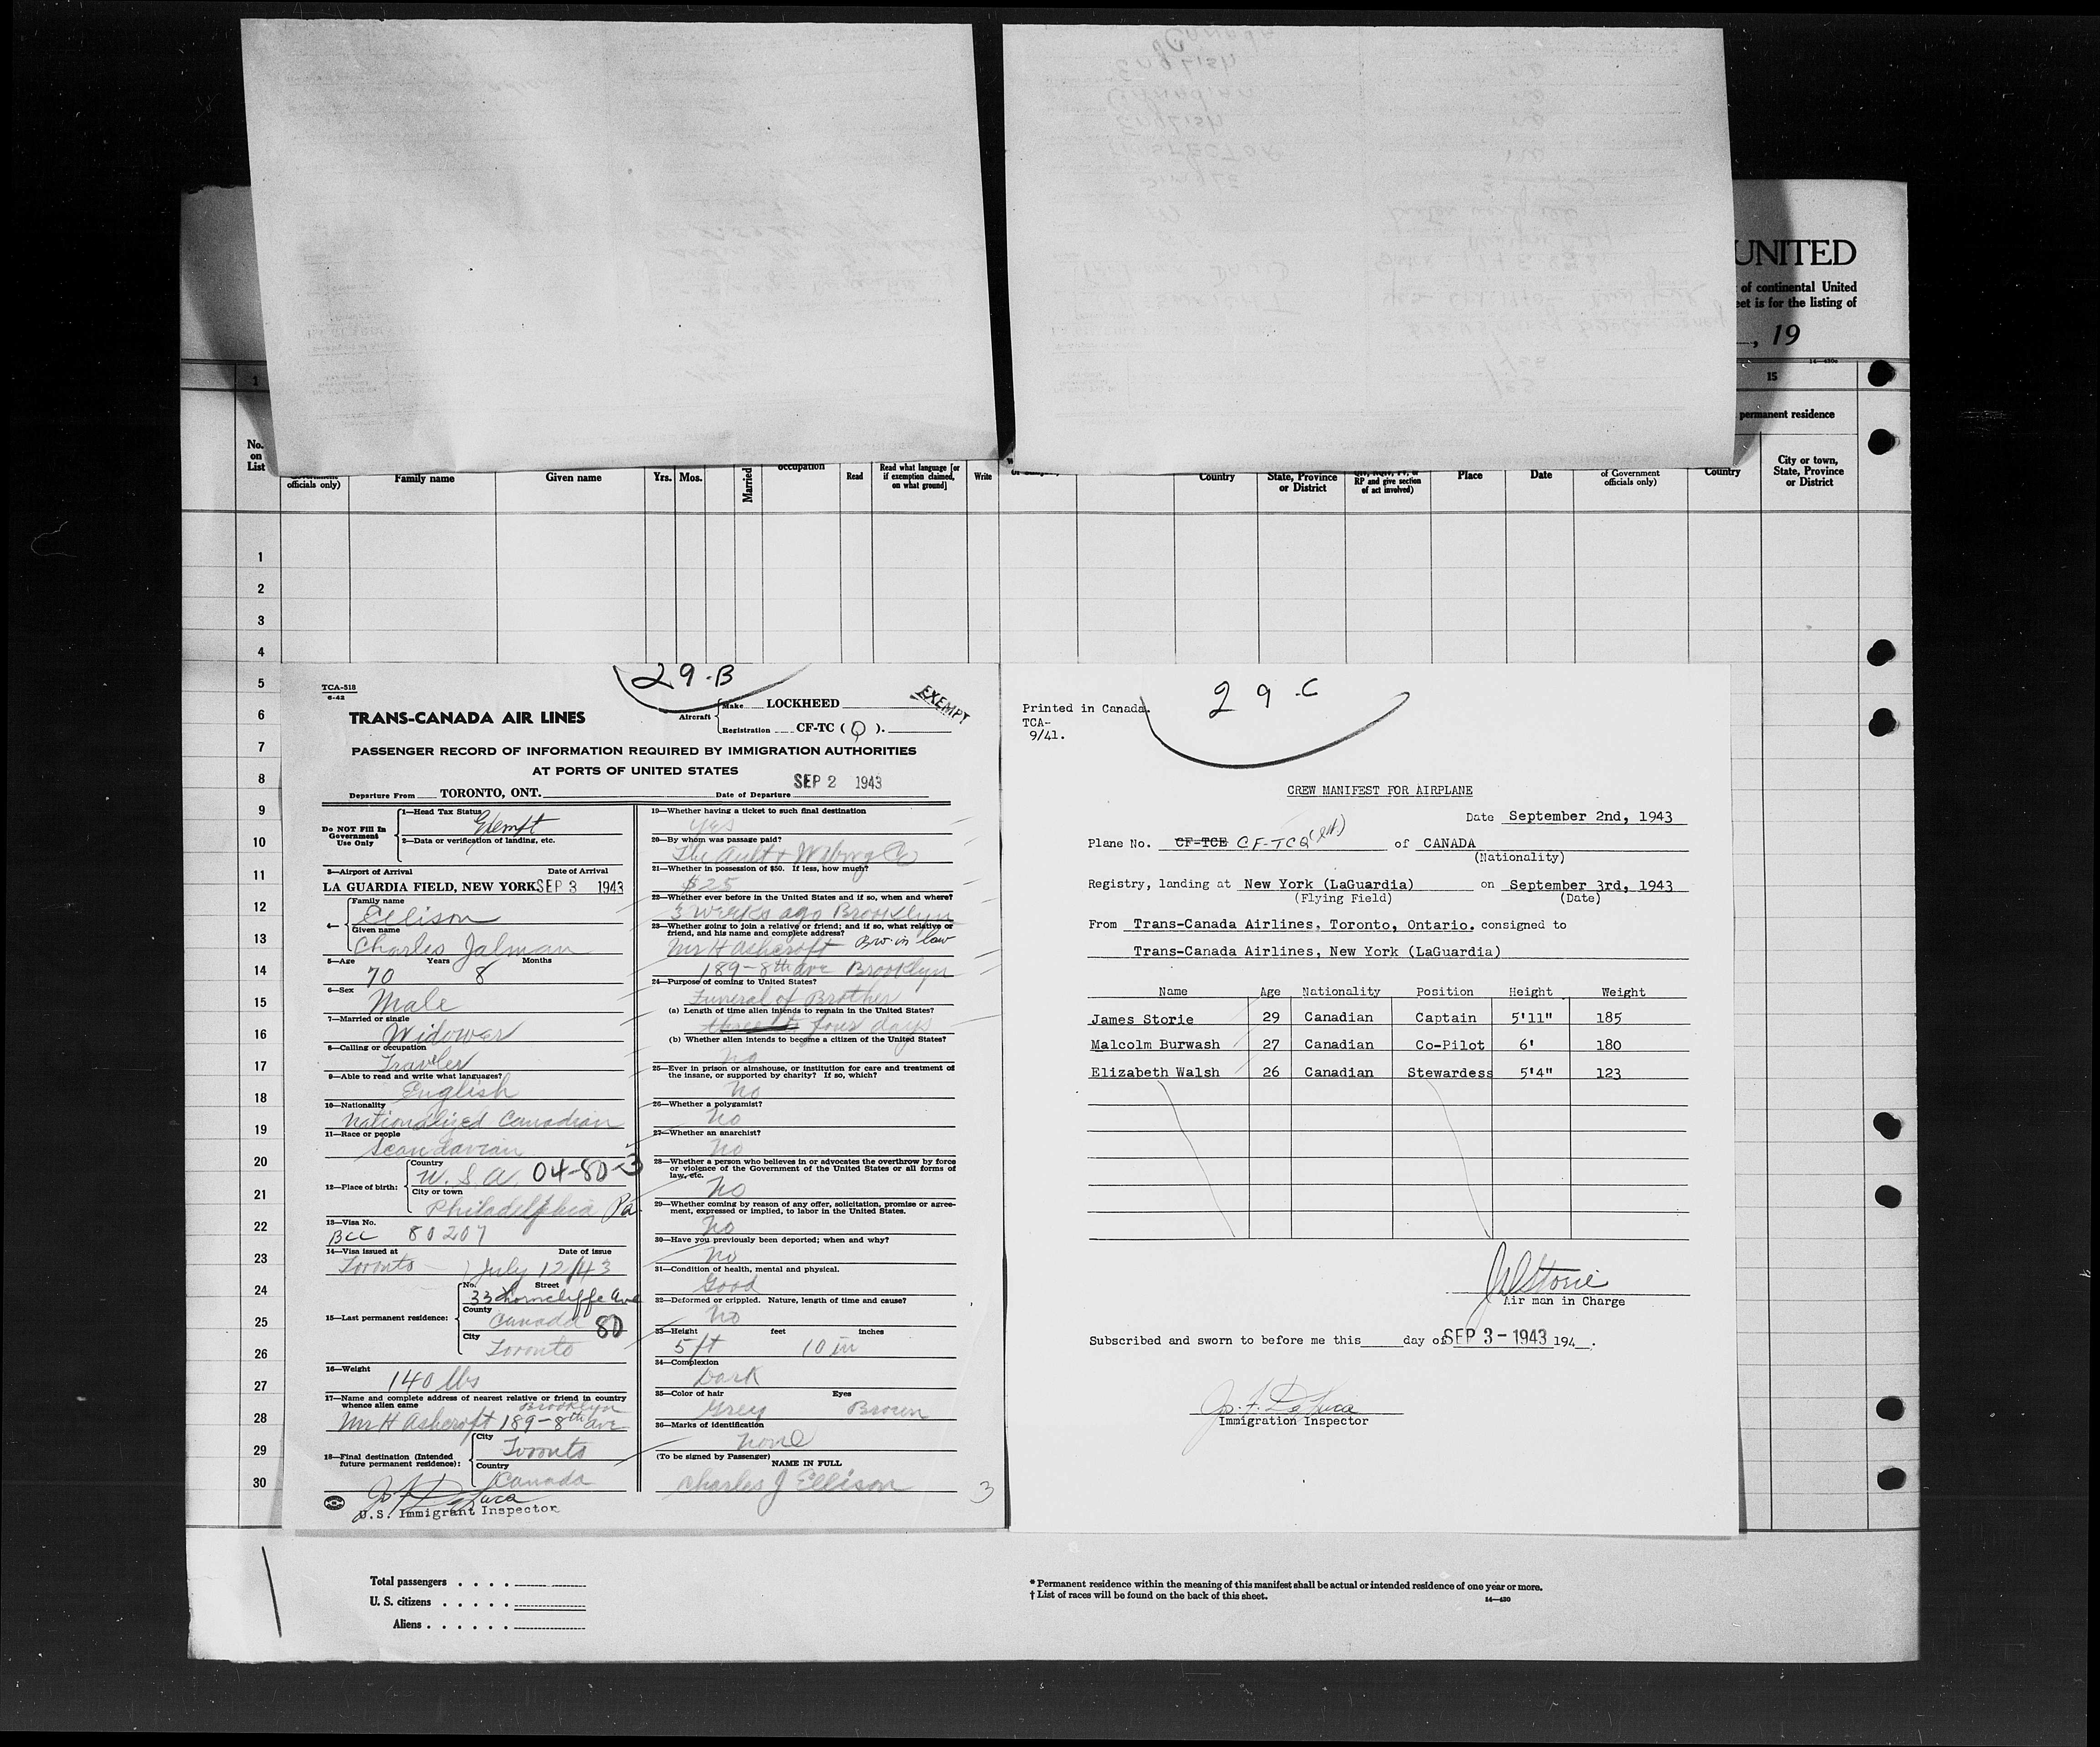 UNITED
of continental United
eet is for the listing of
, 19
14-430c
1
15
permanent residence
No.
on
List
officials only)
Family name
Given name
Yrs.
Mos.
Married
occupation
Read
Read what language [or
if exemption claimed,
on what ground]
Write
Country
State, Province
or District
RP and give section
of act involved)
Place
Date
of Government
officials only)
Country
City or town,
State, Province
or District
1
2
3
4
5
6
7
8
9
10
11
12
13
14
15
16
17
18
19
20
21
22
23
24
25
26
27
28
29
30
29-B
TCA-518
6-42
EXEMPT
TRANS-CANADA AIR LINES
Aircraft
Make LOCKHEED
Registration CF-TC ( Q ).
PASSENGER RECORD OF INFORMATION REQUIRED BY IMMIGRATION AUTHORITIES
AT PORTS OF UNITED STATES
Departure From TORONTO, ONT. Date of Departure SEP 2 1943
Do NOT Fill In
Government
Use Only
1—Head Tax Status
Exempt
2—Data or verification of landing, etc.
3—Airport of Arrival Date of Arrival
LA GUARDIA FIELD, NEW YORK SEP 3 1943
4—
Family name
Ellison
Given name
Charles Jalman
5—Age Years Months
70 8
6—Sex
Male
7—Married or single
Widower
8—Calling or occupation
Traveler
9—Able to read and write what languages?
English
10—Nationality
Nationalized Canadian
11—Race or people
Scandavian
12—Place of birth:
Country
U. S. A. 04-80-3
City or town
Philadelphia Pa
13—Visa No.
BCC 80207
14—Visa issued at Date of issue
Toronto July 12/43
15—Last permanent residence:
No. Street
33 Thorncliffe Ave
County
Canada 80
City
Toronto
16—Weight
140 lbs
17—Name and complete address of nearest relative or friend in country
whence alien came
Brooklyn
Mr H Ashcroft 189-8th ave
18—Final destination (Intended
future permanent residence):
City
Toronto
Country
Canada
Jo. F. DeLuca
U.S. Immigrant Inspector
19—Whether having a ticket to such final destination
yes
20—By whom was passage paid?
The Ault & Wiborg Co
21—Whether in possession of $50. If less, how much?
$25
22—Whether ever before in the United States and if so, when and where?
3 weeks ago Brooklyn
23—Whether going to join a relative or friend; and if so, what relative or
friend, and his name and complete address?
Mr H Ashcroft Bro in law
189-8th ave Brooklyn
24—Purpose of coming to United States?
Funeral of Brother
(a) Length of time alien intends to remain in the United States?
three to four days
(b) Whether alien intends to become a citizen of the United States?
No
25—Ever in prison or almshouse, or institution for care and treatment of
the insane, or supported by charity? If so, which?
No
26—Whether a polygamist?
No
27—Whether an anarchist?
No
28—Whether a person who believes in or advocates the overthrow by force
or violence of the Government of the United States or all forms of
law, etc.
No
29—Whether coming by reason of any offer, solicitation, promise or agree-
ment, expressed or implied, to labor in the United States.
No
30—Have you previously been deported; when and why?
No
31—Condition of health, mental and physical.
Good
32—Deformed or crippled. Nature, length of time and cause?
No
33—Height feet inches
5 ft 10 in
34—Complexion
Dark
35—Color of hair Eyes
Grey Brown
36—Marks of identification
None
(To be signed by Passenger)
NAME IN FULL
Charles J Ellison
3
29-C
Printed in Canada.
TCA-
9/41.
CREW MANIFEST FOR AIRPLANE
Date September 2nd, 1943
Plane No. CF-TCE CF-TCQ of CANADA
(Nationality)
Registry, landing at New York (LaGuardia) on September 3rd, 1943
(Flying Field) (Date)
From Trans-Canada Airlines, Toronto, Ontario. consigned to
Trans-Canada Airlines, New York (LaGuardia)
Name Age Nationality Position Height Weight
James Storie 29 Canadian Captain 5'11" 185
Malcolm Burwash 27 Canadian Co-Pilot 6' 180
Elizabeth Walsh 26 Canadian Stewardess 5'4" 123
Storie
Air man in Charge
Subscribed and sworn to before me this day of SEP 3 - 1943 194 .
Jo. F. DeLuca
Immigration Inspector
Total passengers
U. S. citizens
Aliens
* Permanent residence within the meaning of this manifest shall be actual or intended residence of one year or more.
† List of races will be found on the back of this sheet.
14—430